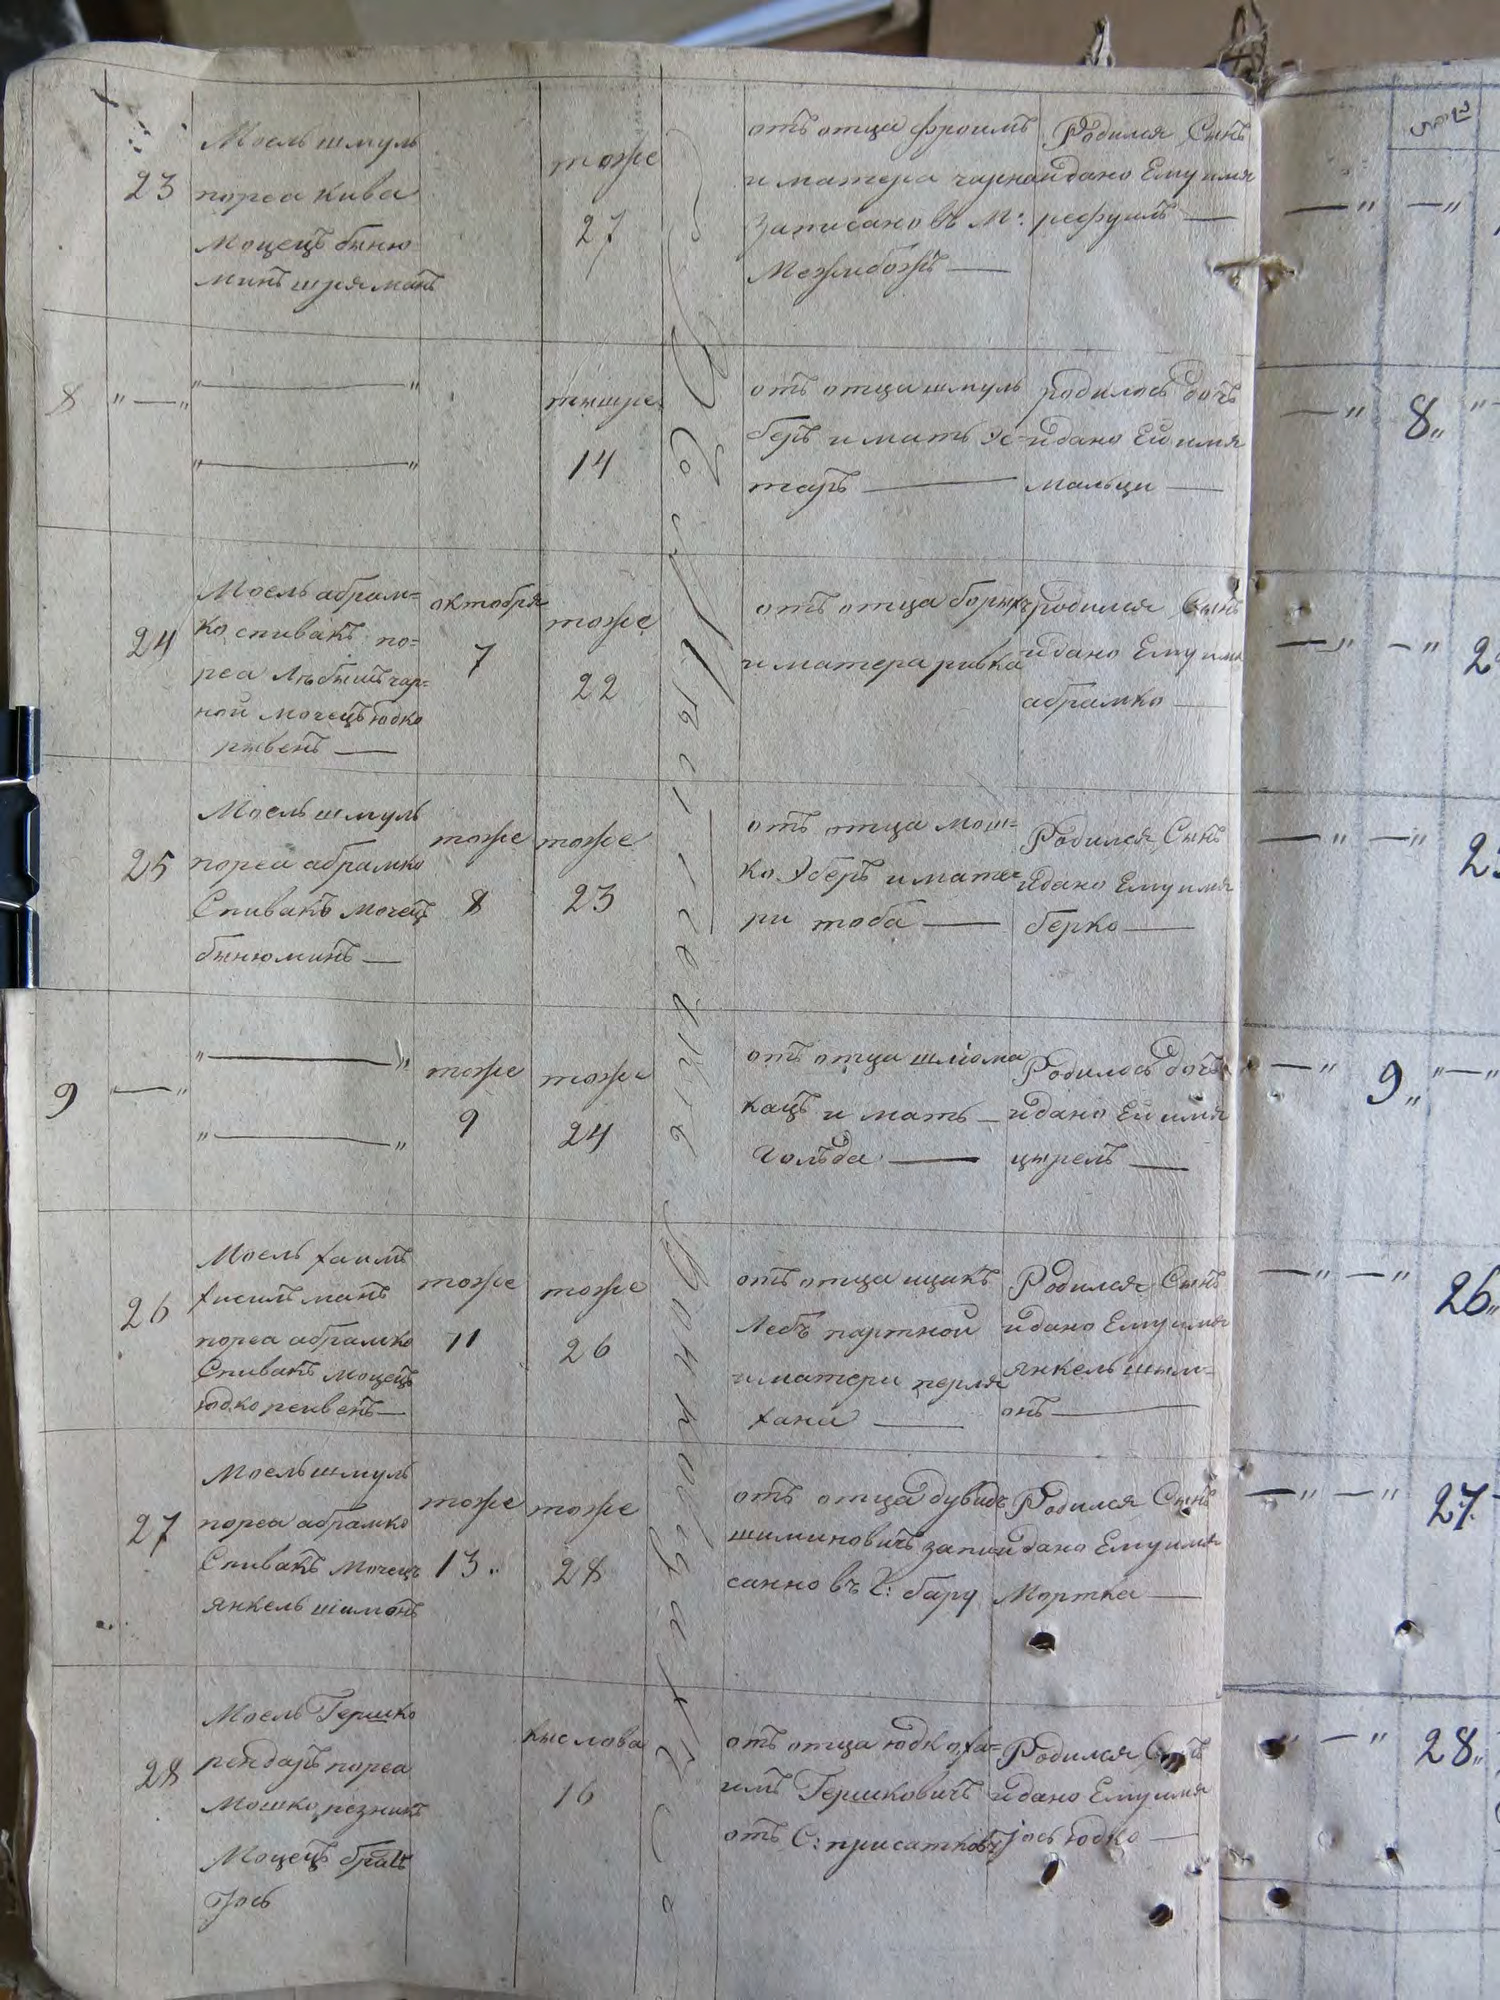 23
Моель шмуль
пореа кива
Моцецъ биню
минъ шряманъ
тоже
27
отъ отца фроимъ
и матера чарна
Записано въ М:
Межибожъ —
Родился Сынъ
и дано Ему имя
рефуилъ —
— " — "
8 " — "
" — "
" — "
тишре
14
отъ отца шмуль
беръ и мать эс-
таръ —
родилось дочъ
и дано Ей имя
мальци —
— " 8 "
24
Моель абрам=
ко спивакъ по=
реа Лѣбишъ чар=
ной мочецъ юдко
рывенъ —
октобря
7
тоже
22
отъ отца борихъ
и матера ривка
родился Сынъ
и дано Ему имя
абрамко —
— " — " 2
25
Моель шмуль
пореа абрамко
Спивакъ мочецъ
бинюминъ —
тоже
8
тоже
23
отъ отца мош=
ко Эберъ и мате
ри тоба —
Родился Сынъ
и дано Ему имя
берко —
— " — " 2
9 — "
" — "
" — "
тоже
9
тоже
24
отъ отца шліома
кацъ и мать —
Гольда —
Родилось дочъ
и дано Ей имя
цирель —
— " 9 " — "
26
Моель хаимъ
фисильманъ
пореа абрамко
Спивакъ моцецъ
юдко реивенъ —
тоже
11
тоже
26
отъ отца ицикъ
Лебъ партной
и матери перля
хани —
Родился Сынъ
и дано Ему имя
янкель шим=
онъ —
— " — " 26 "
27
Моель шмуль
пореа абрамко
Спивакъ мочецъ
янкель шимонъ
тоже
13.
тоже
28
отъ отца дувидъ
шиминовичъ запи
санно въ Х: баръ
Родился Сынъ
и дано Ему имя
Мортка —
— " — " 27
28
Моель Гершко
рендаръ пореа
мошко резникъ
Моцецъ братъ
Іось
кислова
16
отъ отца юдко ха=
имъ Гершковичъ
отъ С: присатковъ
Родился Сынъ
и дано Ему имя
Іось юдко —
" — " 28 "